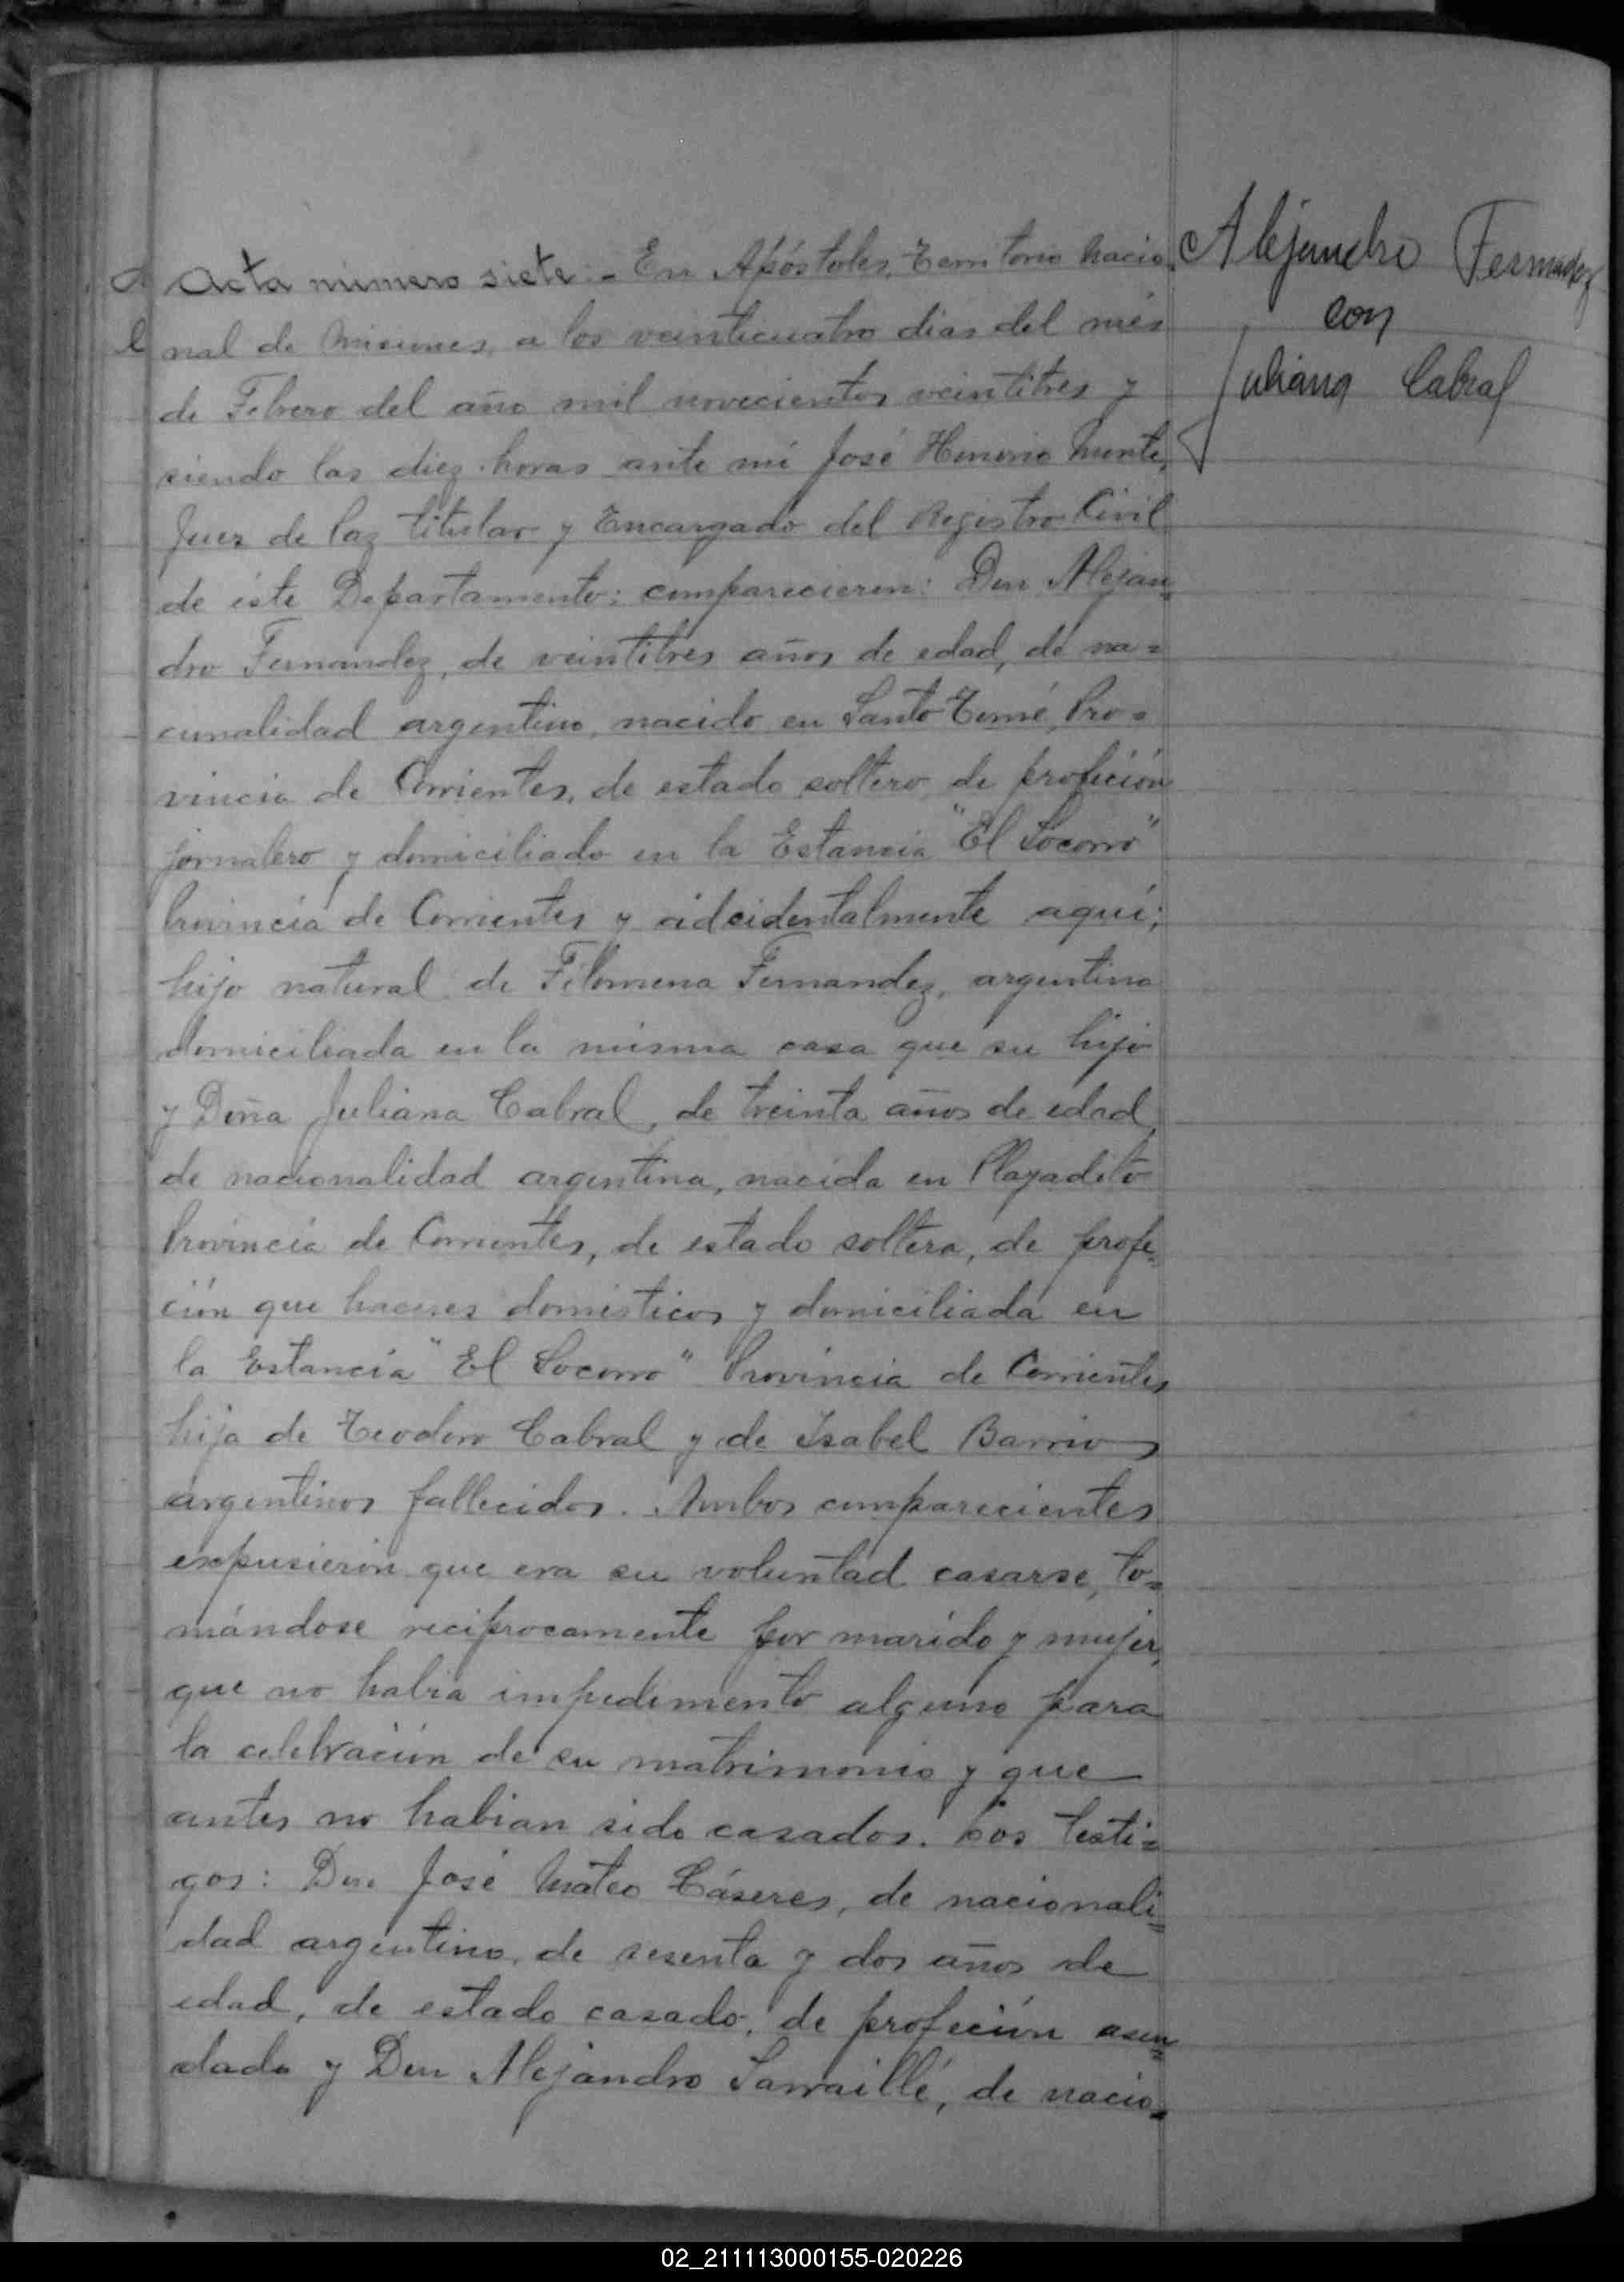 Acta número siete:- En Apóstoles, Territorio nacio-
nal de Misiones, a los veinticuatro dias del més
de Febrero del año mil novecientos veintitres y
siendo las diez horas ante mi José Honorio
Juez de Paz titular y Encargado del Registro Civil
de éste Departamento: comparecieron: Don Alejan=
dro Fernandez, de veintitres años de edad, de na=
cionalidad argentino, nacido en Santo Tomé, Pro=
vincia de Corrientes, de estado soltero, de profeción
jornalero y domiciliado en la Estancia "El Socorro"
Provincia de Corrientes y aidcidentalmente aquí;
hijo natural de Filomena Fernandez, argentina
domiciliada en la misma casa que su hijo
y Doña Juliana Cabral, de treinta años de edad,
de nacionalidad argentina, nacida en Playadito
Provincia de Corrientes, de estado soltera, de profe=
ción que haceres domesticos y domiciliada en
la Estancia "El Socorro" Provincia de Corrientes
hija de Teodoro Cabral y de Isabel Barrios
argentinos fallecidos. Ambos comparecientes
expusieron que era su voluntad casarse, to=
mándose reciprocamente por marido y mujer,
que no habia impedimento alguno para
la celebración de su matrimonio y que
antes no habian sido casados. Los testi=
gos: Don José Mateo Cáseres, de nacionali=
dad argentino, de sesenta y dos años de
edad, de estado casado, de profeción asen=
dado y Don Alejandro Sarraillé, de nacio=
Alejandro Fernadez
con
Juliana Cabral
02_211113000155-020226